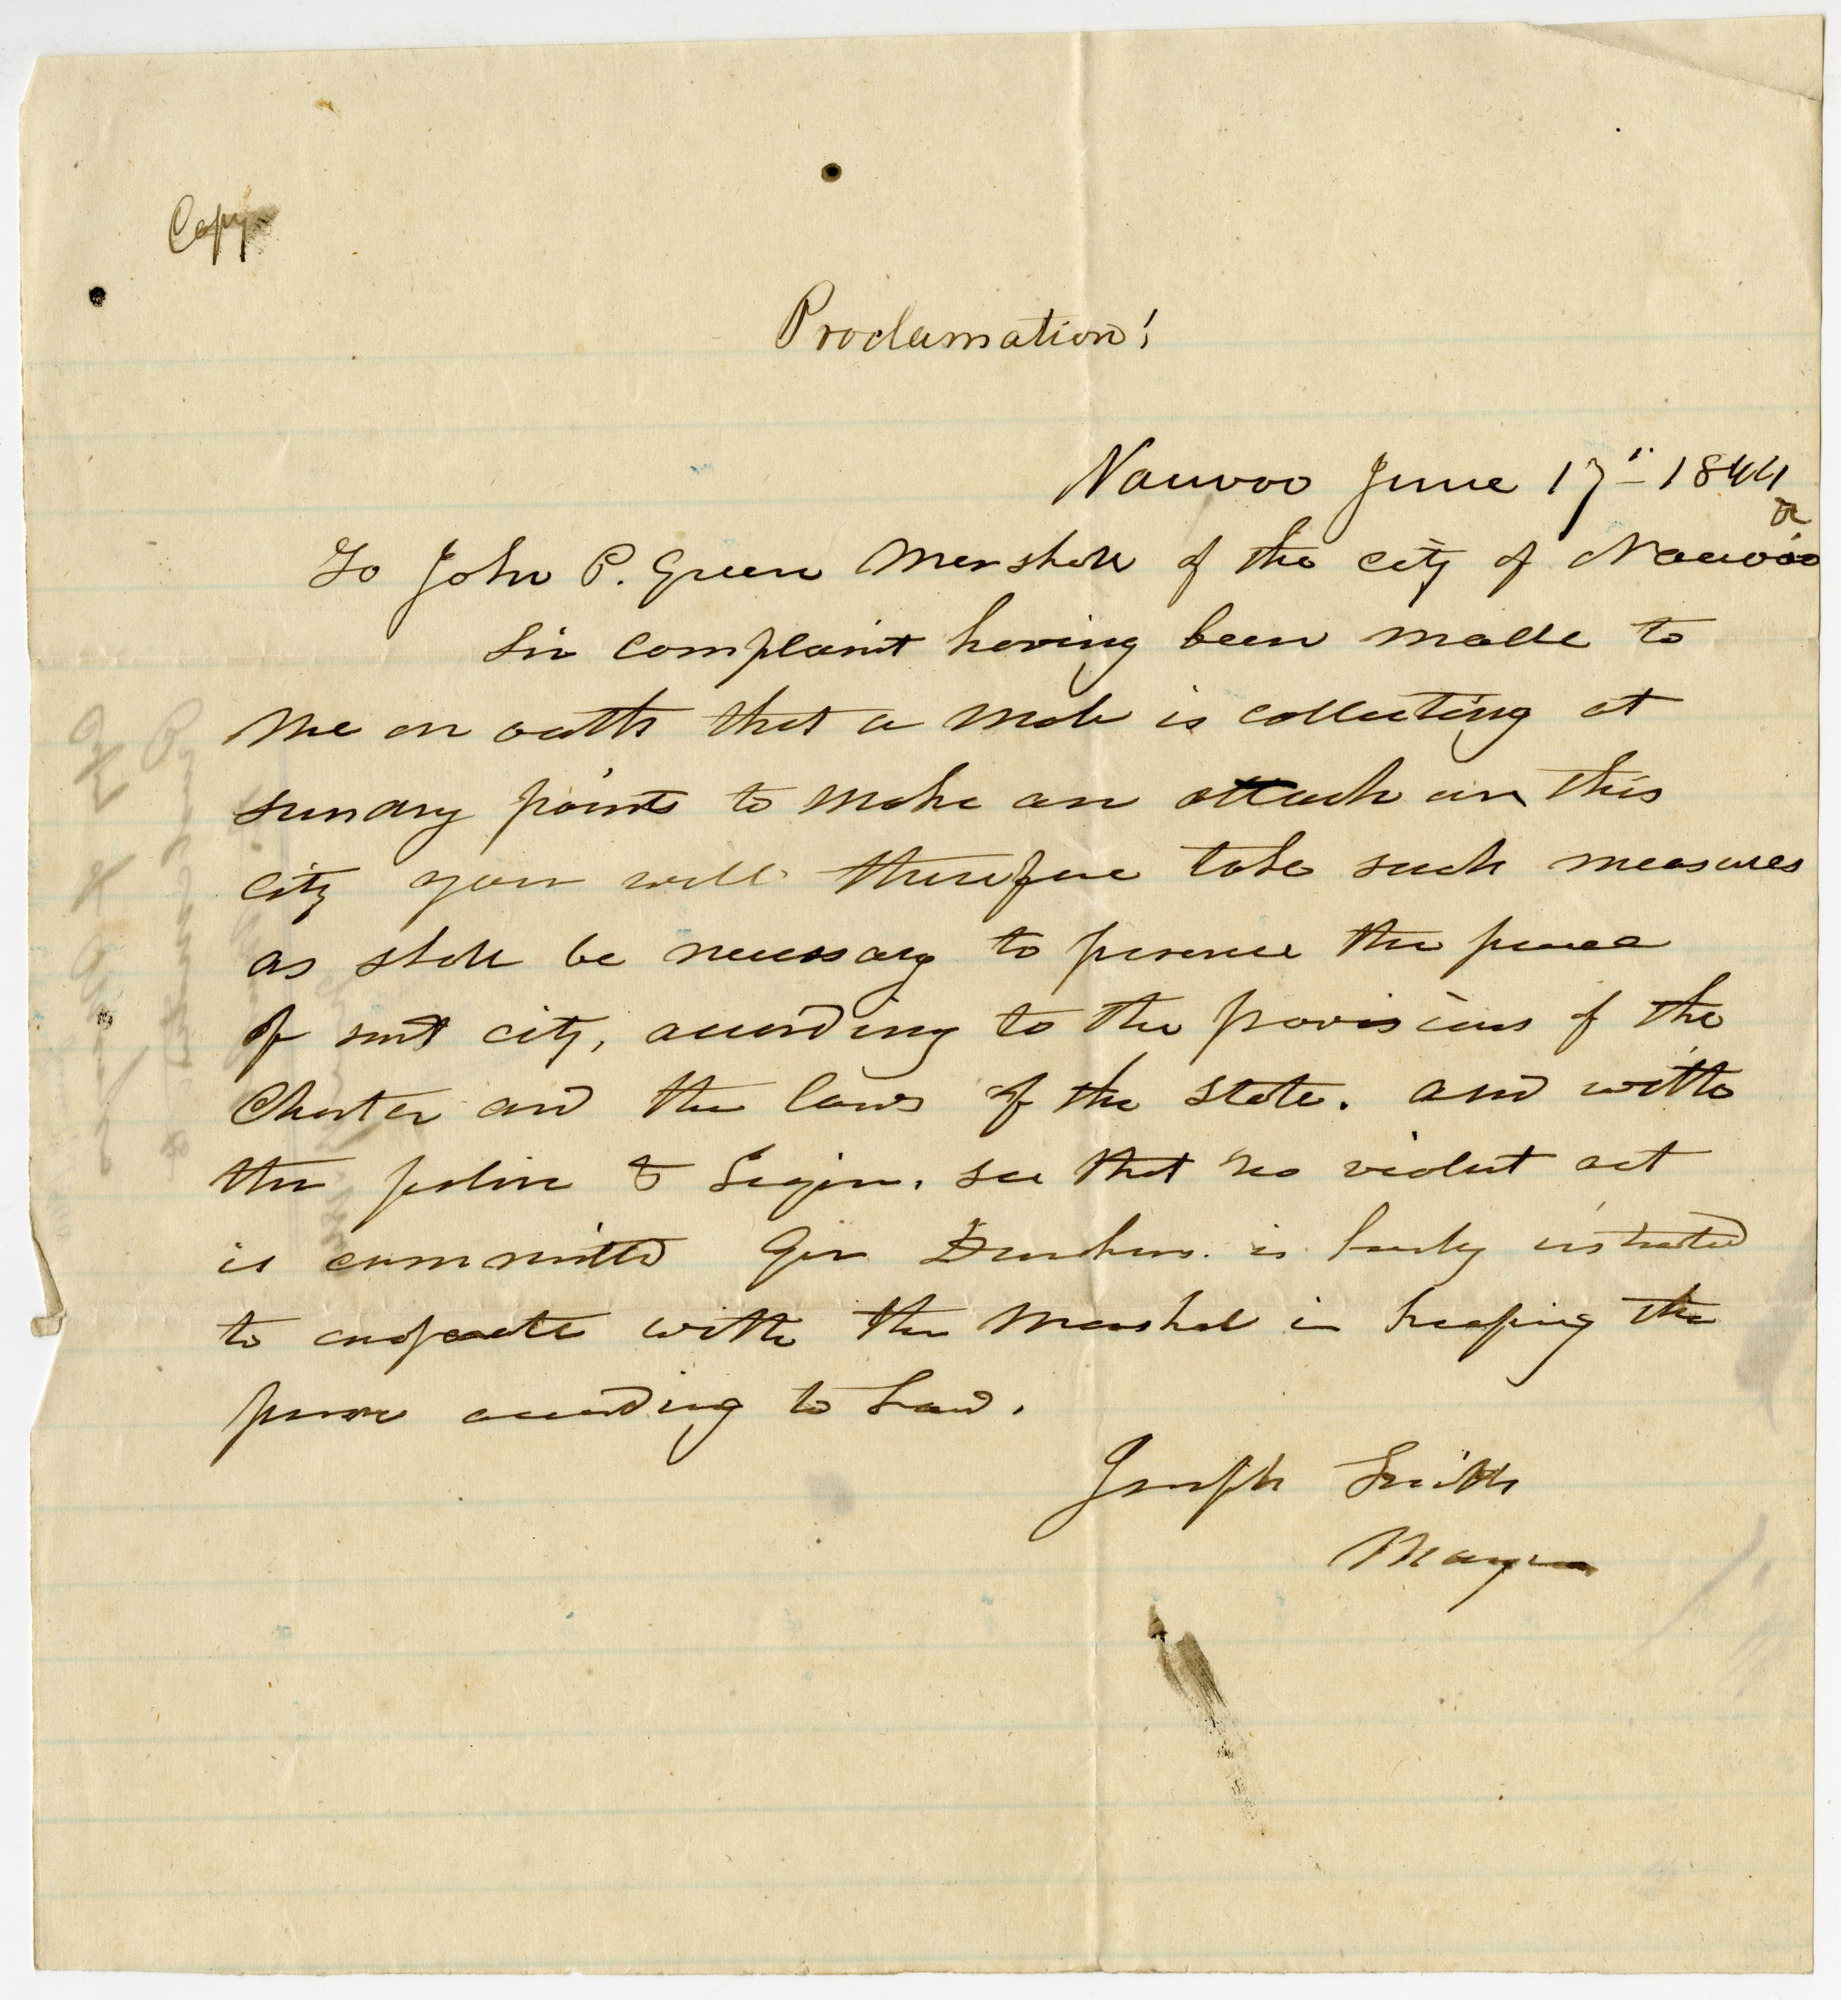 Copy
Proclamation!
Nauvoo June 17" 1844
To John P. Green Marshall of the city of Nauvoo &c
Sir complaint having been made to
me on oath that a mob is collecting at
sundry points to make an attack on this
city you will therefore take such measures
as shall be necessary to preserve the peace
of said city, according to the provisions of the
Charter and the laws of the State. and with
the police & Legion. see that no violent act
is committed Gen Dunham. is hereby instructed
to cooperate with the Marshal in keeping the
peace according to Law.
Joseph Smith
Mayor